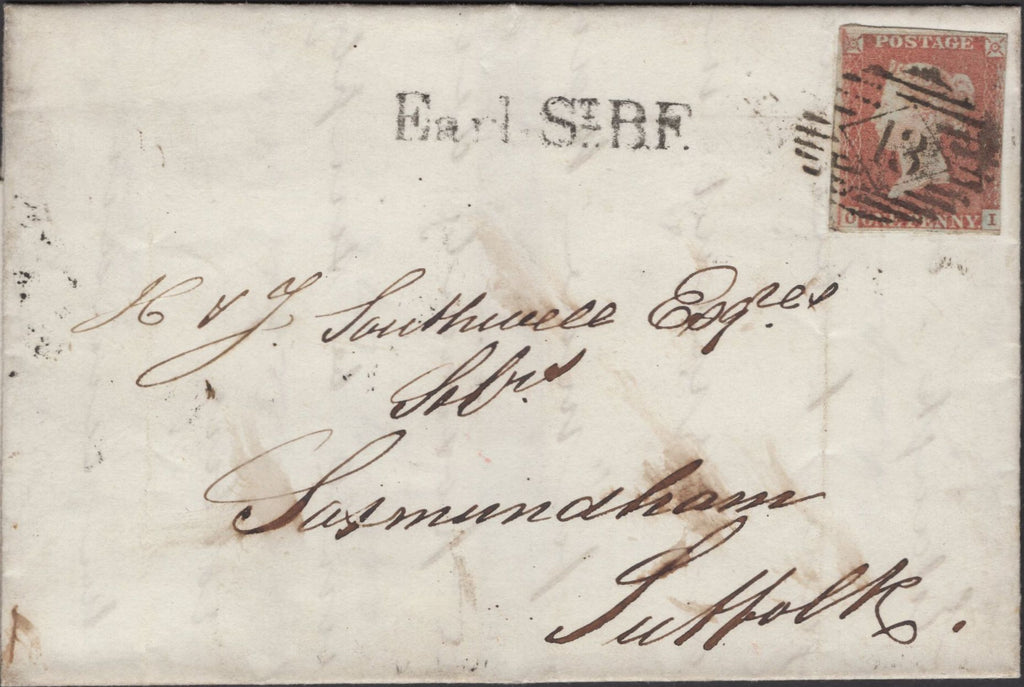 POSTAGE
13
O ONE PENNY. I
Earl St. B.F.
H & J. Southwell Esqres
Solrs
Saxmundham
Suffolk.